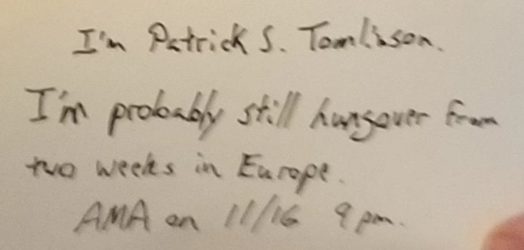 I'm Patrick S. Tomlinson.
I'm probably still hungover from
two weeks in Europe.
AMA on 11/16 9 pm.